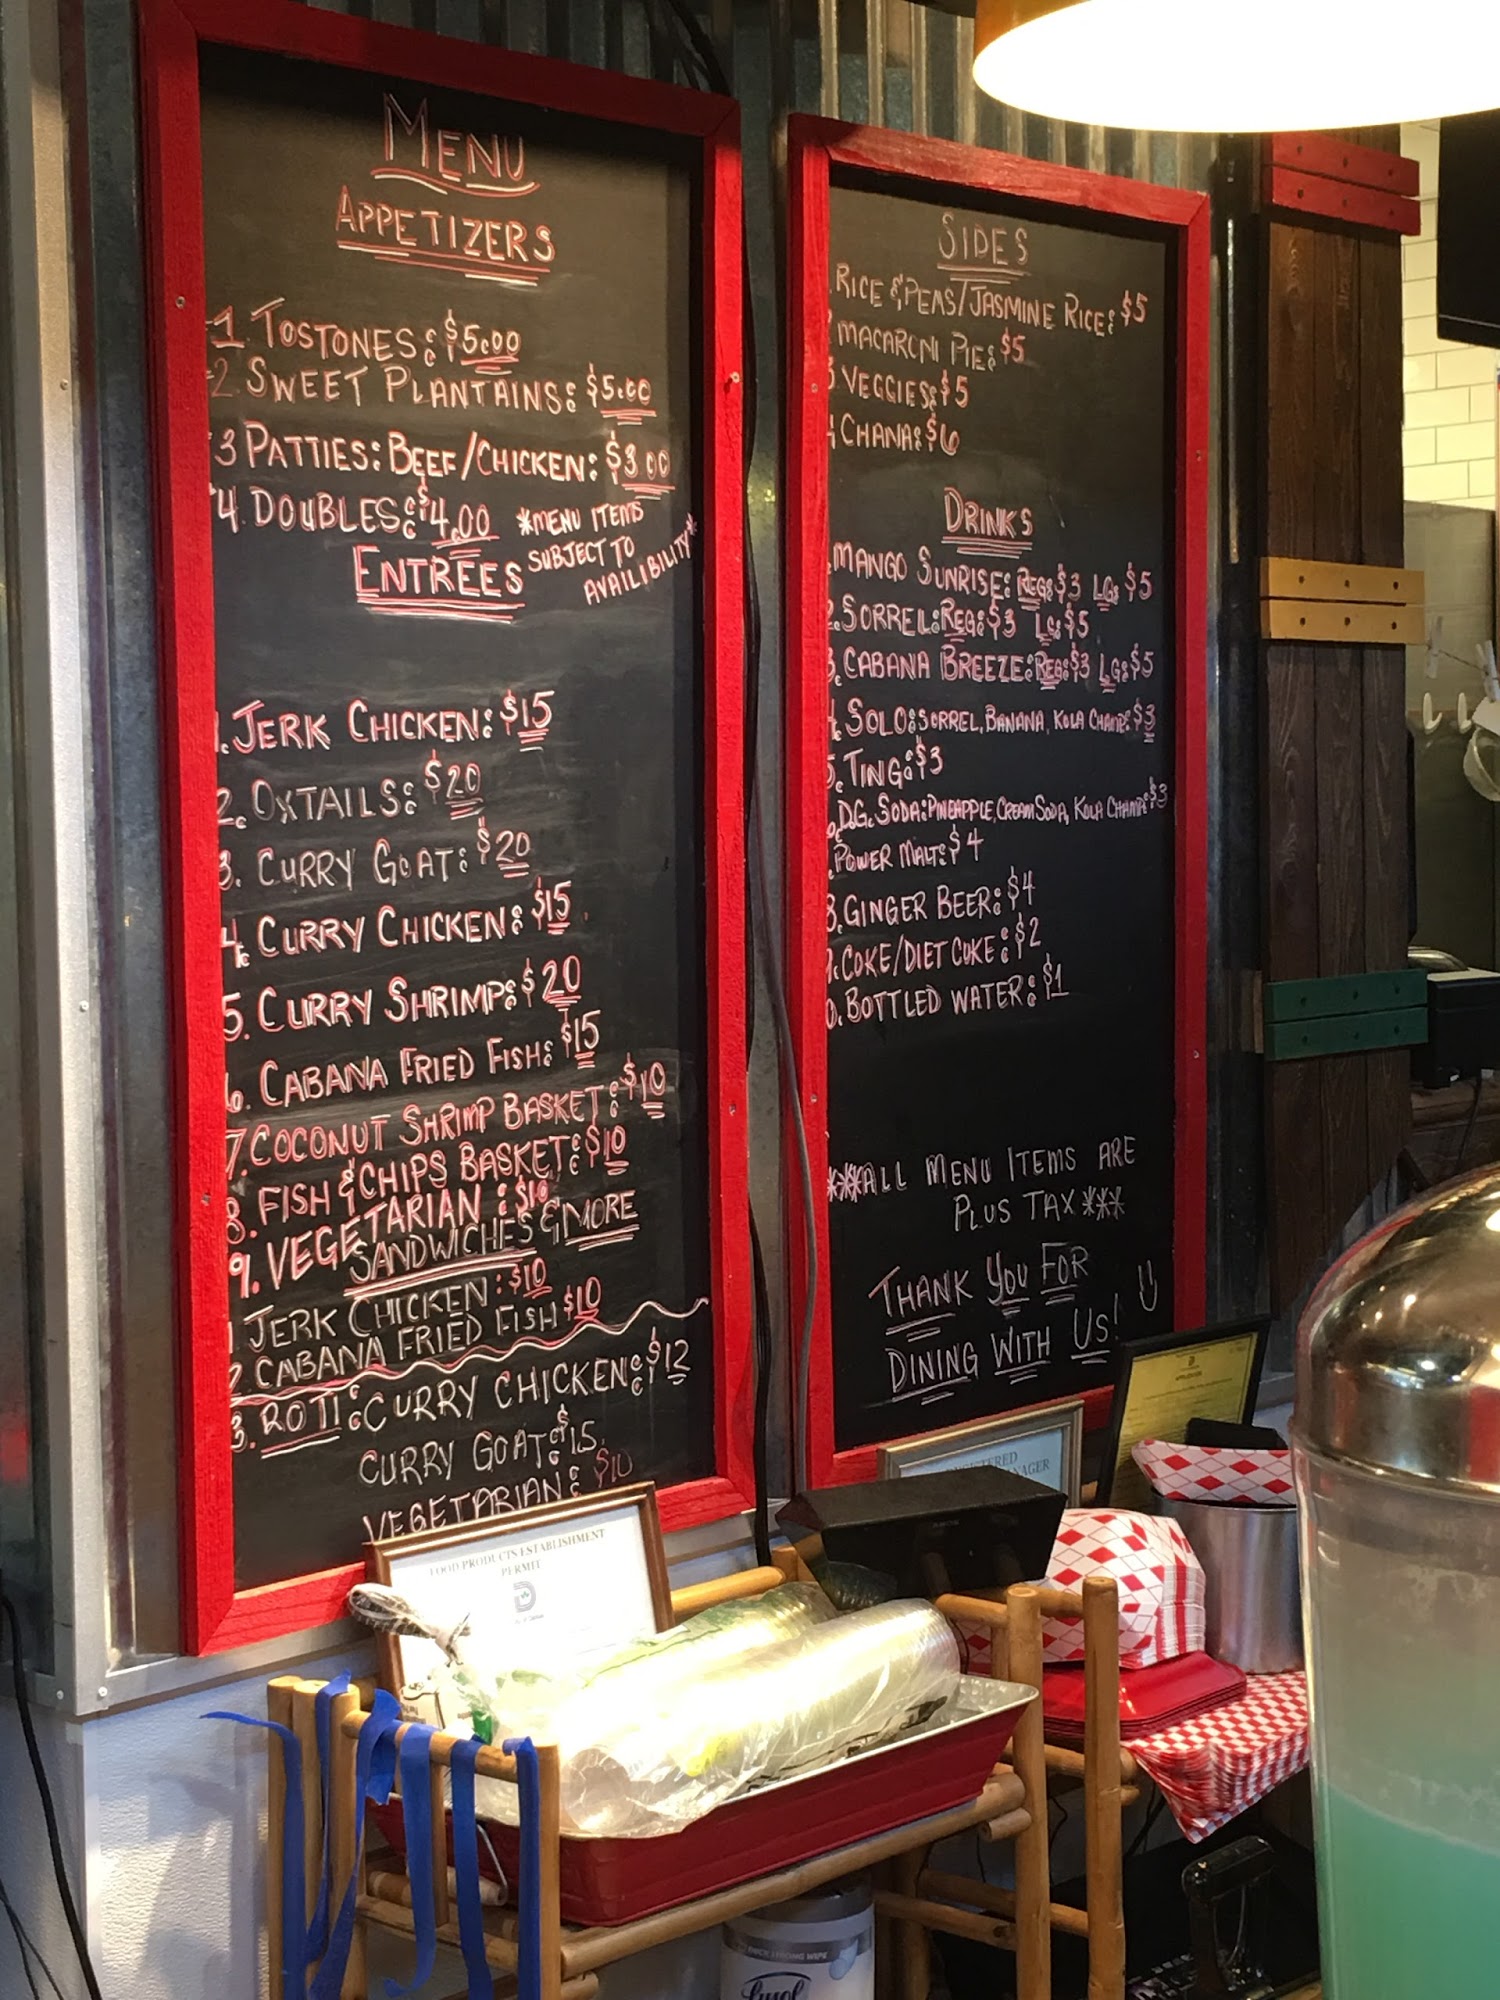 MENU
APPETIZERS
#1 TOSTONES: $5.00
#2 SWEET PLANTAINS: $5.00
#3 PATTIES: BEEF/CHICKEN: $3.00
#4 DOUBLES: $4.00
*MENU ITEMS
SUBJECT TO
AVAILIBILITY*
ENTREES
1. JERK CHICKEN: $15
2. OXTAILS: $20
3. CURRY GOAT: $20
4. CURRY CHICKEN: $15
5. CURRY SHRIMP: $20
6. CABANA FRIED FISH: $15
7. COCONUT SHRIMP BASKET: $10
8. FISH & CHIPS BASKET: $10
9. VEGETARIAN: $10
SANDWICHES & MORE
1 JERK CHICKEN: $10
2 CABANA FRIED FISH $10
3. ROTI: CURRY CHICKEN: $12
CURRY GOAT: $15
VEGETARIAN: $10
SIDES
RICE & PEAS/JASMINE RICE: $5
MACARONI PIE: $5
VEGGIES: $5
4 CHANA: $6
DRINKS
MANGO SUNRISE: REG: $3 LG: $5
2. SORREL: REG: $3 LG: $5
3. CABANA BREEZE: REG: $3 LG: $5
4. SOLO: SORREL, BANANA, KOLA CHAMP: $3
5. TING: $3
D.G. SODA: PINEAPPLE, CREAM SODA, KOLA CHAMP: $3
POWER MALT: $4
8. GINGER BEER: $4
9. COKE/DIET COKE: $2
0. BOTTLED WATER: $1
***ALL MENU ITEMS ARE
PLUS TAX***
THANK YOU FOR
DINING WITH US!
FOOD PRODUCTS ESTABLISHMENT
PERMIT